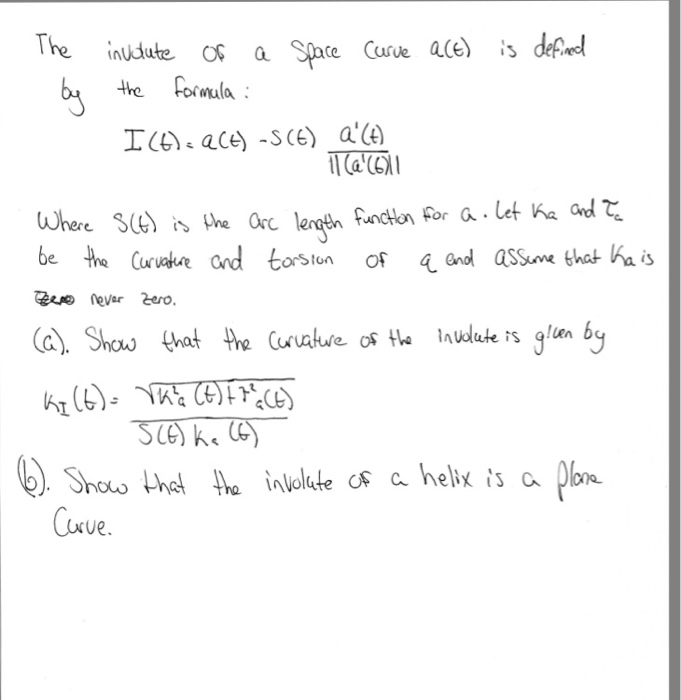 The involute of a Space Curve a(t) is defined
by the formula:
I(t) = a(t) - S(t) a'(t) / ||(a'(t)||
Where S(t) is the arc length function for a. Let Ka and τa
be the Curvature and torsion of a and assume that Ka is
never zero.
(a). Show that the Curvature of the involute is given by
KI(t) = √K²a(t) + τ²a(t) / S(t) Ka(t)
(b). Show that the involute of a helix is a plane
Curve.